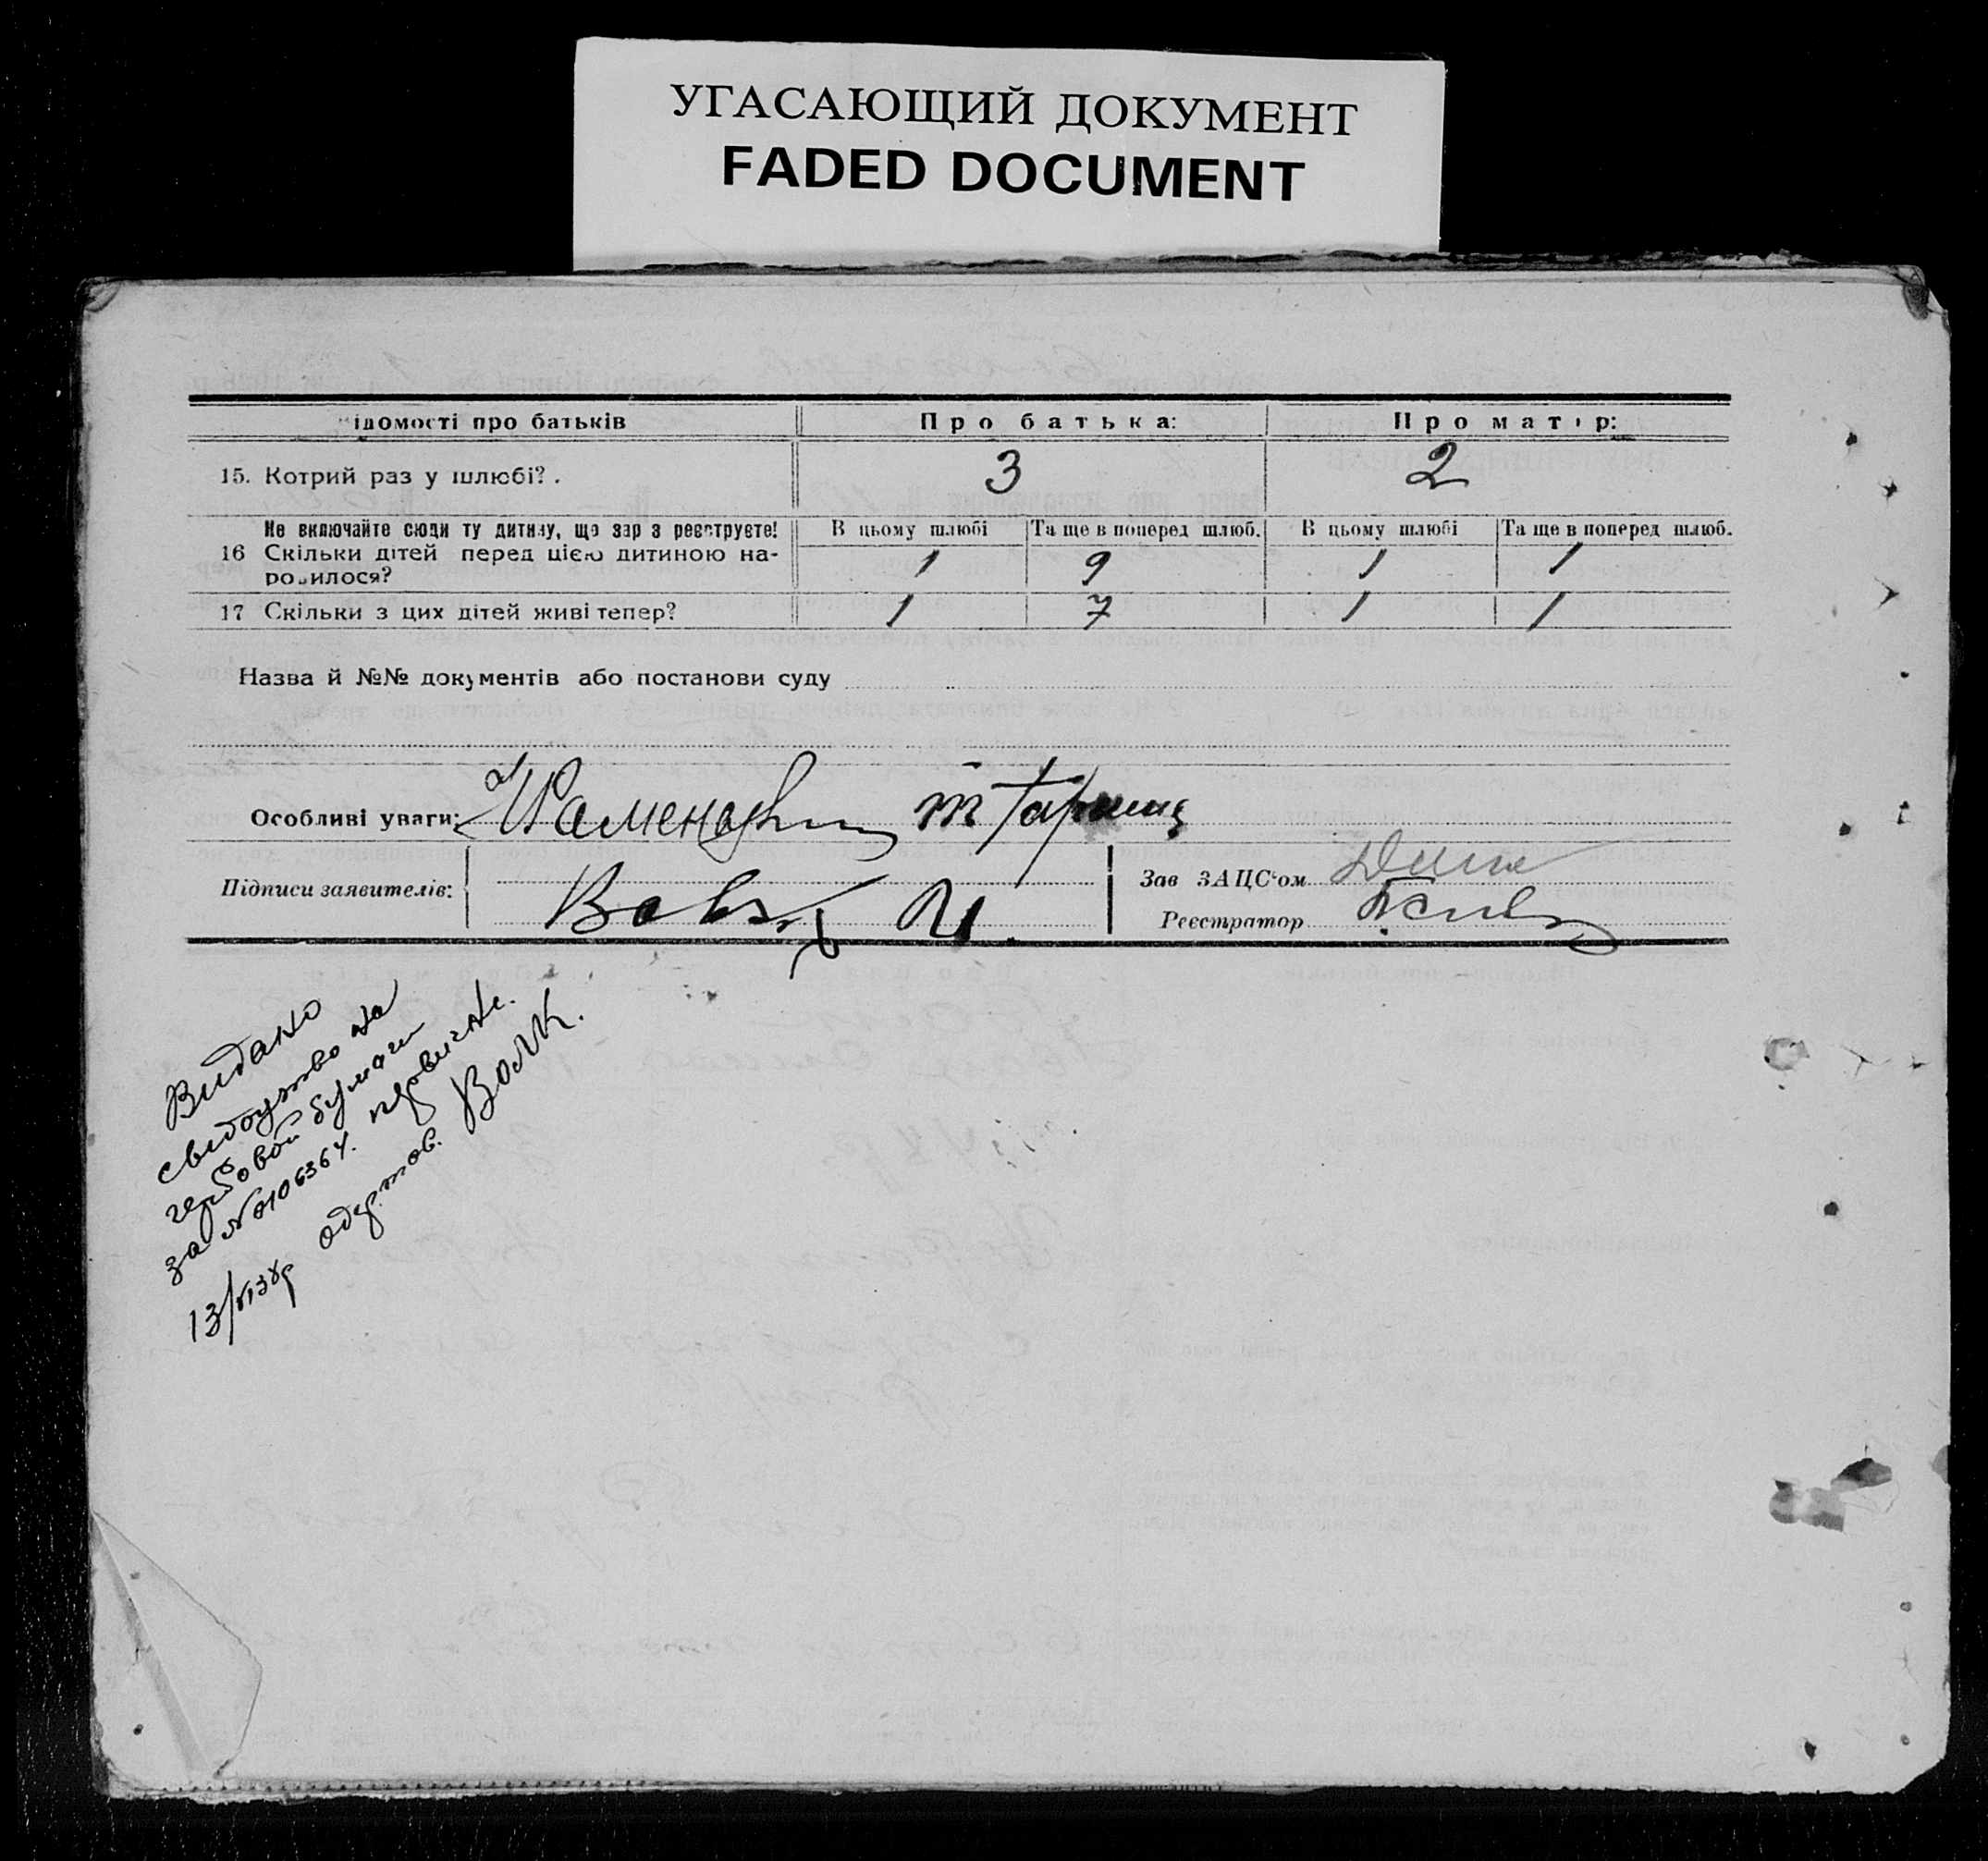 УГАСАЮЩИЙ ДОКУМЕНТ
FADED DOCUMENT
ідомості про батьків Про батька: Про матір:
15. Котрий раз у шлюбі?. 3 2
Не включайте сюди ту дитину, що зар з реєструєте! В цьому шлюбі Та ще в поперед шлюб. В цьому шлюбі Та ще в поперед шлюб.
16 Скільки дітей перед цією дитиною на- 1 9 1 1
родилося?
17 Скільки з цих дітей живі тепер? 1 7 1 1
Назва й №№ документів або постанови суду
Особливі уваги:
Підписи заявителів: Зав ЗАЦС'ом
Вовк И. Реєстратор
Видано
свидоцтво на
гербовой бумаги
за №0106364.
13/VI 38р одержав. Вовк.